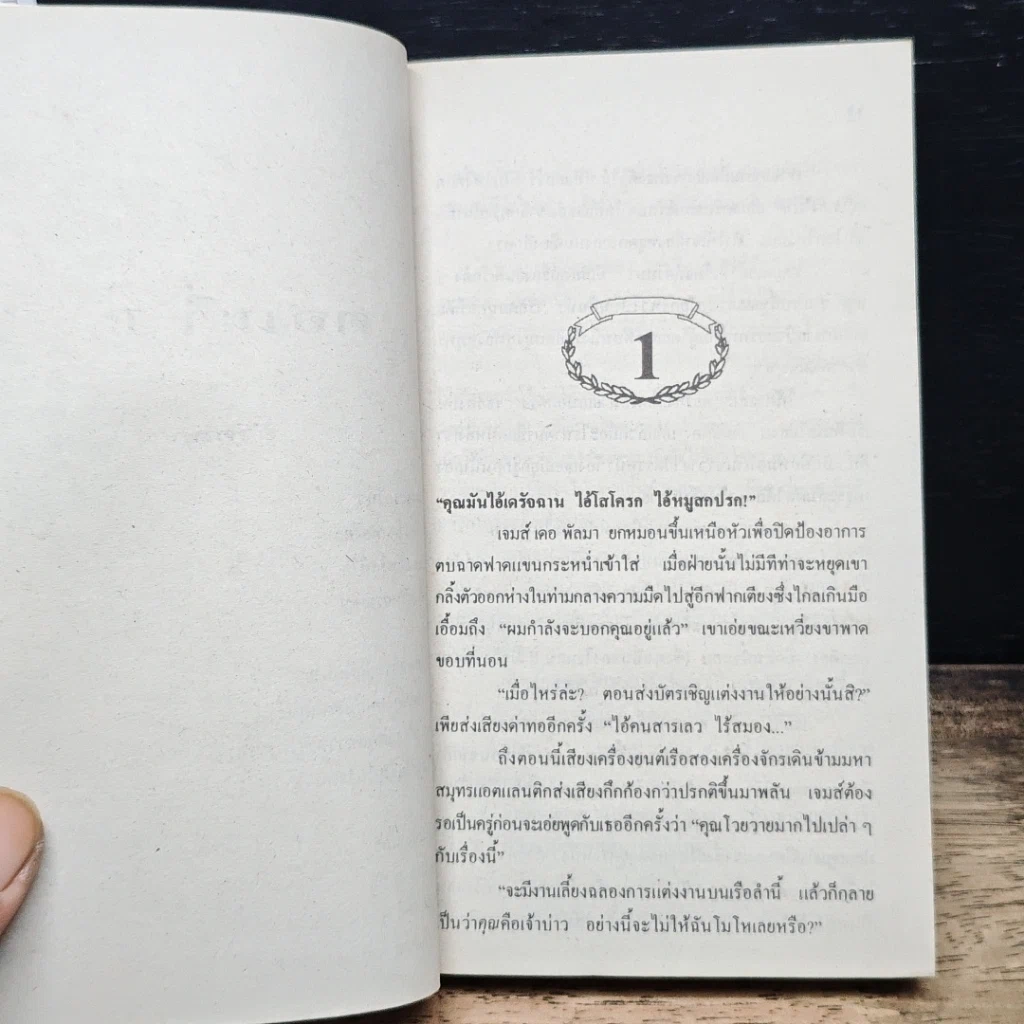 1
“คุณมันไอ้เดรัจฉาน ไอ้โสโครก ไอ้หมูสกปรก!”
เจมส์ เดอ พัลมา ยกหมอนขึ้นเหนือหัวเพื่อปิดป้องอาการ
ตบฉาดฟาดแขนกระหน่ำเข้าใส่ เมื่อฝ่ายนั้นไม่มีทีท่าจะหยุดเขา
กลิ้งตัวออกห่างในท่ามกลางความมืดไปสู่อีกฟากเตียงซึ่งไกลเกินมือ
เอื้อมถึง “ผมกำลังจะบอกคุณอยู่แล้ว” เขาเอ่ยขณะเหวี่ยงขาพาด
ขอบที่นอน
“เมื่อไหร่ล่ะ? ตอนส่งบัตรเชิญแต่งงานให้อย่างนั้นสิ?”
เพียส่งเสียงด่าทออีกครั้ง “ไอ้คนสารเลว ไร้สมอง...”
ถึงตอนนี้เสียงเครื่องยนต์เรือสองเครื่องจักรเดินข้ามมหา
สมุทรแอตแลนติกส่งเสียงกึกก้องกว่าปรกติขึ้นมาพลัน เจมส์ต้อง
รอเป็นครู่ก่อนจะเอ่ยพูดกับเธออีกครั้งว่า “คุณโวยวายมากไปเปล่า ๆ
กับเรื่องนี้”
“จะมีงานเลี้ยงฉลองการแต่งงานบนเรือลำนี้ แล้วก็กลาย
เป็นว่าคุณคือเจ้าบ่าว อย่างนี้จะไม่ให้ฉันโมโหเลยหรือ?”